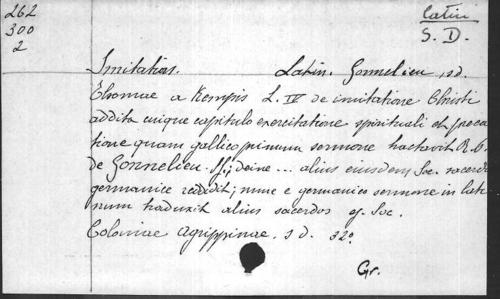 262
300
2
Latin
S. D.
Imitation. Latin. Gonnelieu, s.d.
Thomae a Kempis L. IV de imitatione Christi
addita cuique capitulo exercitatione spirituali et preca
tione quam gallico primum sermone tractavit R. P.
de Gonnelieu. S.J; deine ... alius eiusdem Soc. sacerdos
germanice reddidit; nunc e germanico sermone in lati
num traduxit alius sacerdos ej. Soc.
Coloniae Agrippinae. s d. 32º
Gr.